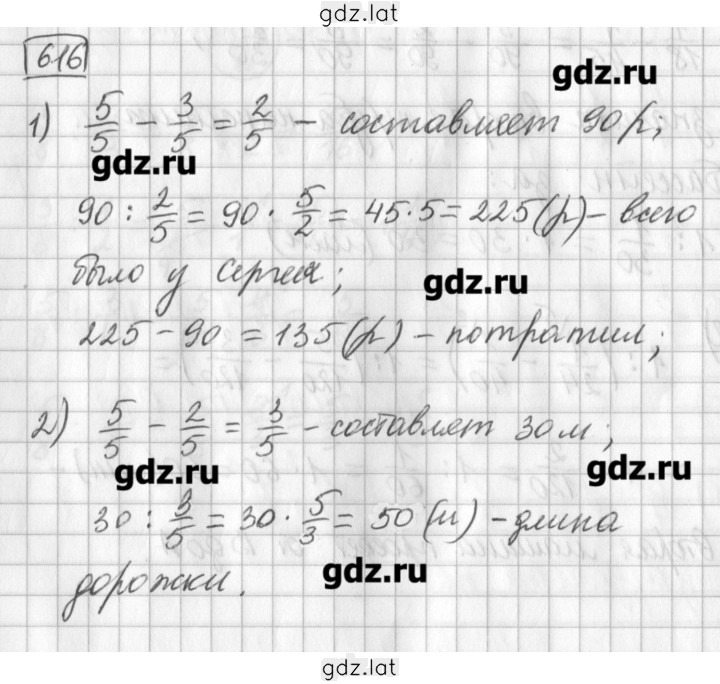 gdz.lat
616
gdz.ru
1) 5/5 - 3/5 = 2/5 - составляет 90 р;
gdz.ru
90 : 2/5 = 90 · 5/2 = 45·5 = 225(р) - всего
было у Сергея;
gdz.ru
225 - 90 = 135(р) - потратил;
2) 5/5 - 2/5 = 3/5 - составляет 30 м;
gdz.ru
gdz.ru
30 : 3/5 = 30 · 5/3 = 50 (м) - длина
gdz.ru
дорожки.
gdz.lat